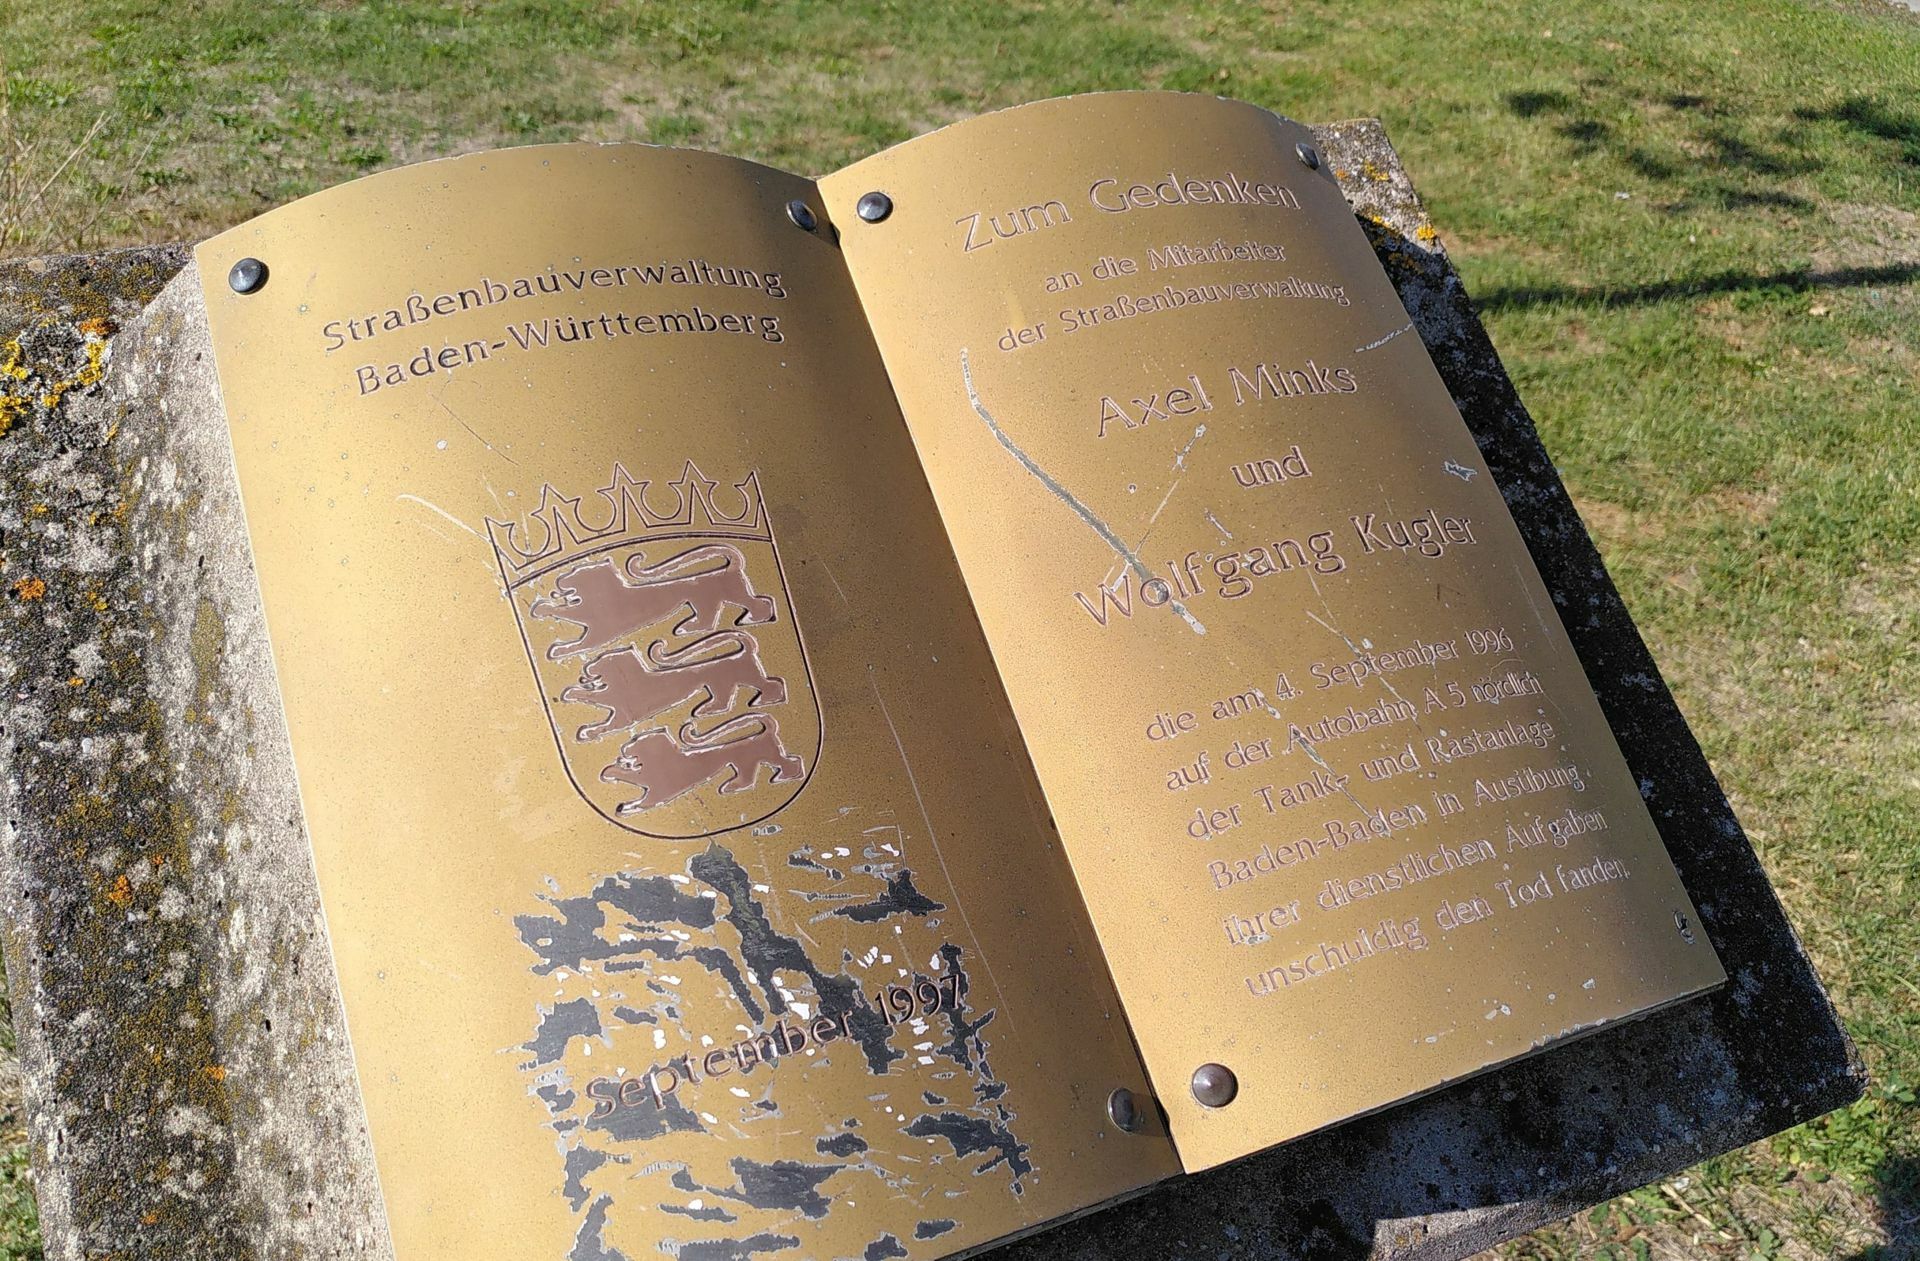 Straßenbauverwaltung
Baden-Württemberg
September 1997
Zum Gedenken
an die Mitarbeiter
der Straßenbauverwaltung
Axel Minks
und
Wolfgang Kugler
die am 4. September 1996
auf der Autobahn A 5 nördlich
der Tank- und Rastanlage
Baden-Baden in Ausübung
ihrer dienstlichen Aufgaben
unschuldig den Tod fanden.